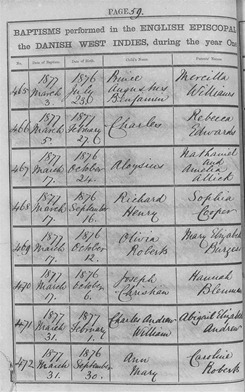 PAGE 59.
BAPTISMS performed in the ENGLISH EPISCOPAL
the DANISH WEST INDIES, during the year One
No. Date of Baptism. Date of Birth. Child's Name. Parents' Names.
465 1877 March 3. 1876 July 23 Prince Augustus Benjamin Mercilla Williams
466 1877 March 5. 1876 February 27 Charles Rebecca Edwards
467 1877 March 17 1876 October 24. Aloysius Nathaniel and Amelia Allick
468 1877 March 17. 1876 September 16. Richard Henry Sophia Cooper
469 1877 March 17. 1876 October 12. Olivia Roberts Mary Elizabeth
470 1877 March 17. 1876 October 6. Joseph Christian Hannah
471 1877 March 31. 1877 February 1. Charles Andrew William Abigail Elizabeth Andrew
472 1877 March 31. 1876 September 30. Ann Mary Caroline Roberts